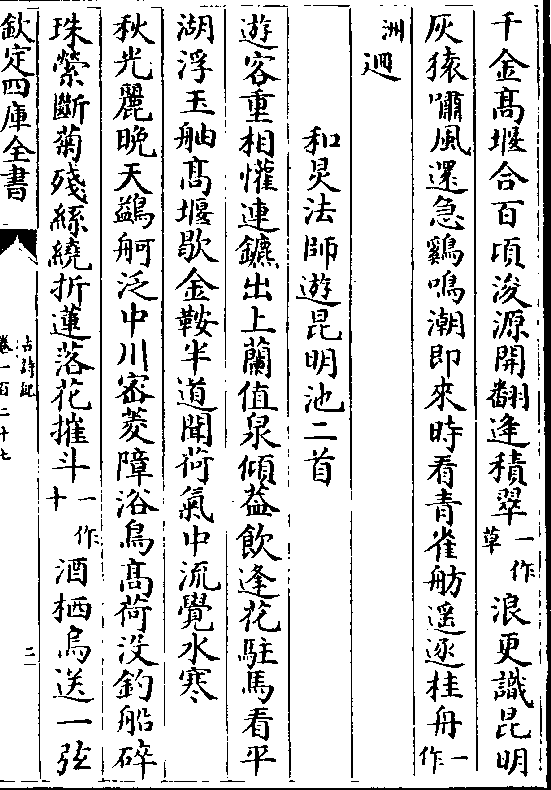 千金髙堰合百頃浚源開翻逢積翠一作草浪更識昆明
灰猿嘯風還急鷄鳴潮即來時看青雀舫遥逐桂舟一作
洲廻
和炅法師遊昆明池二首
遊客重相懽連鑣出上蘭值泉傾葢飲逢花駐馬看平
湖浮玉舳髙堰歇金鞍半道聞荷氣中流覺水寒
秋光麗晚天鷁舸泛中川宻菱障浴鳥髙荷没釣船碎
珠縈斷菊殘絲繞折蓮落花摧斗一作十酒栖烏送一弦
欽定四庫全書
古詩紀
卷一百二十七
二